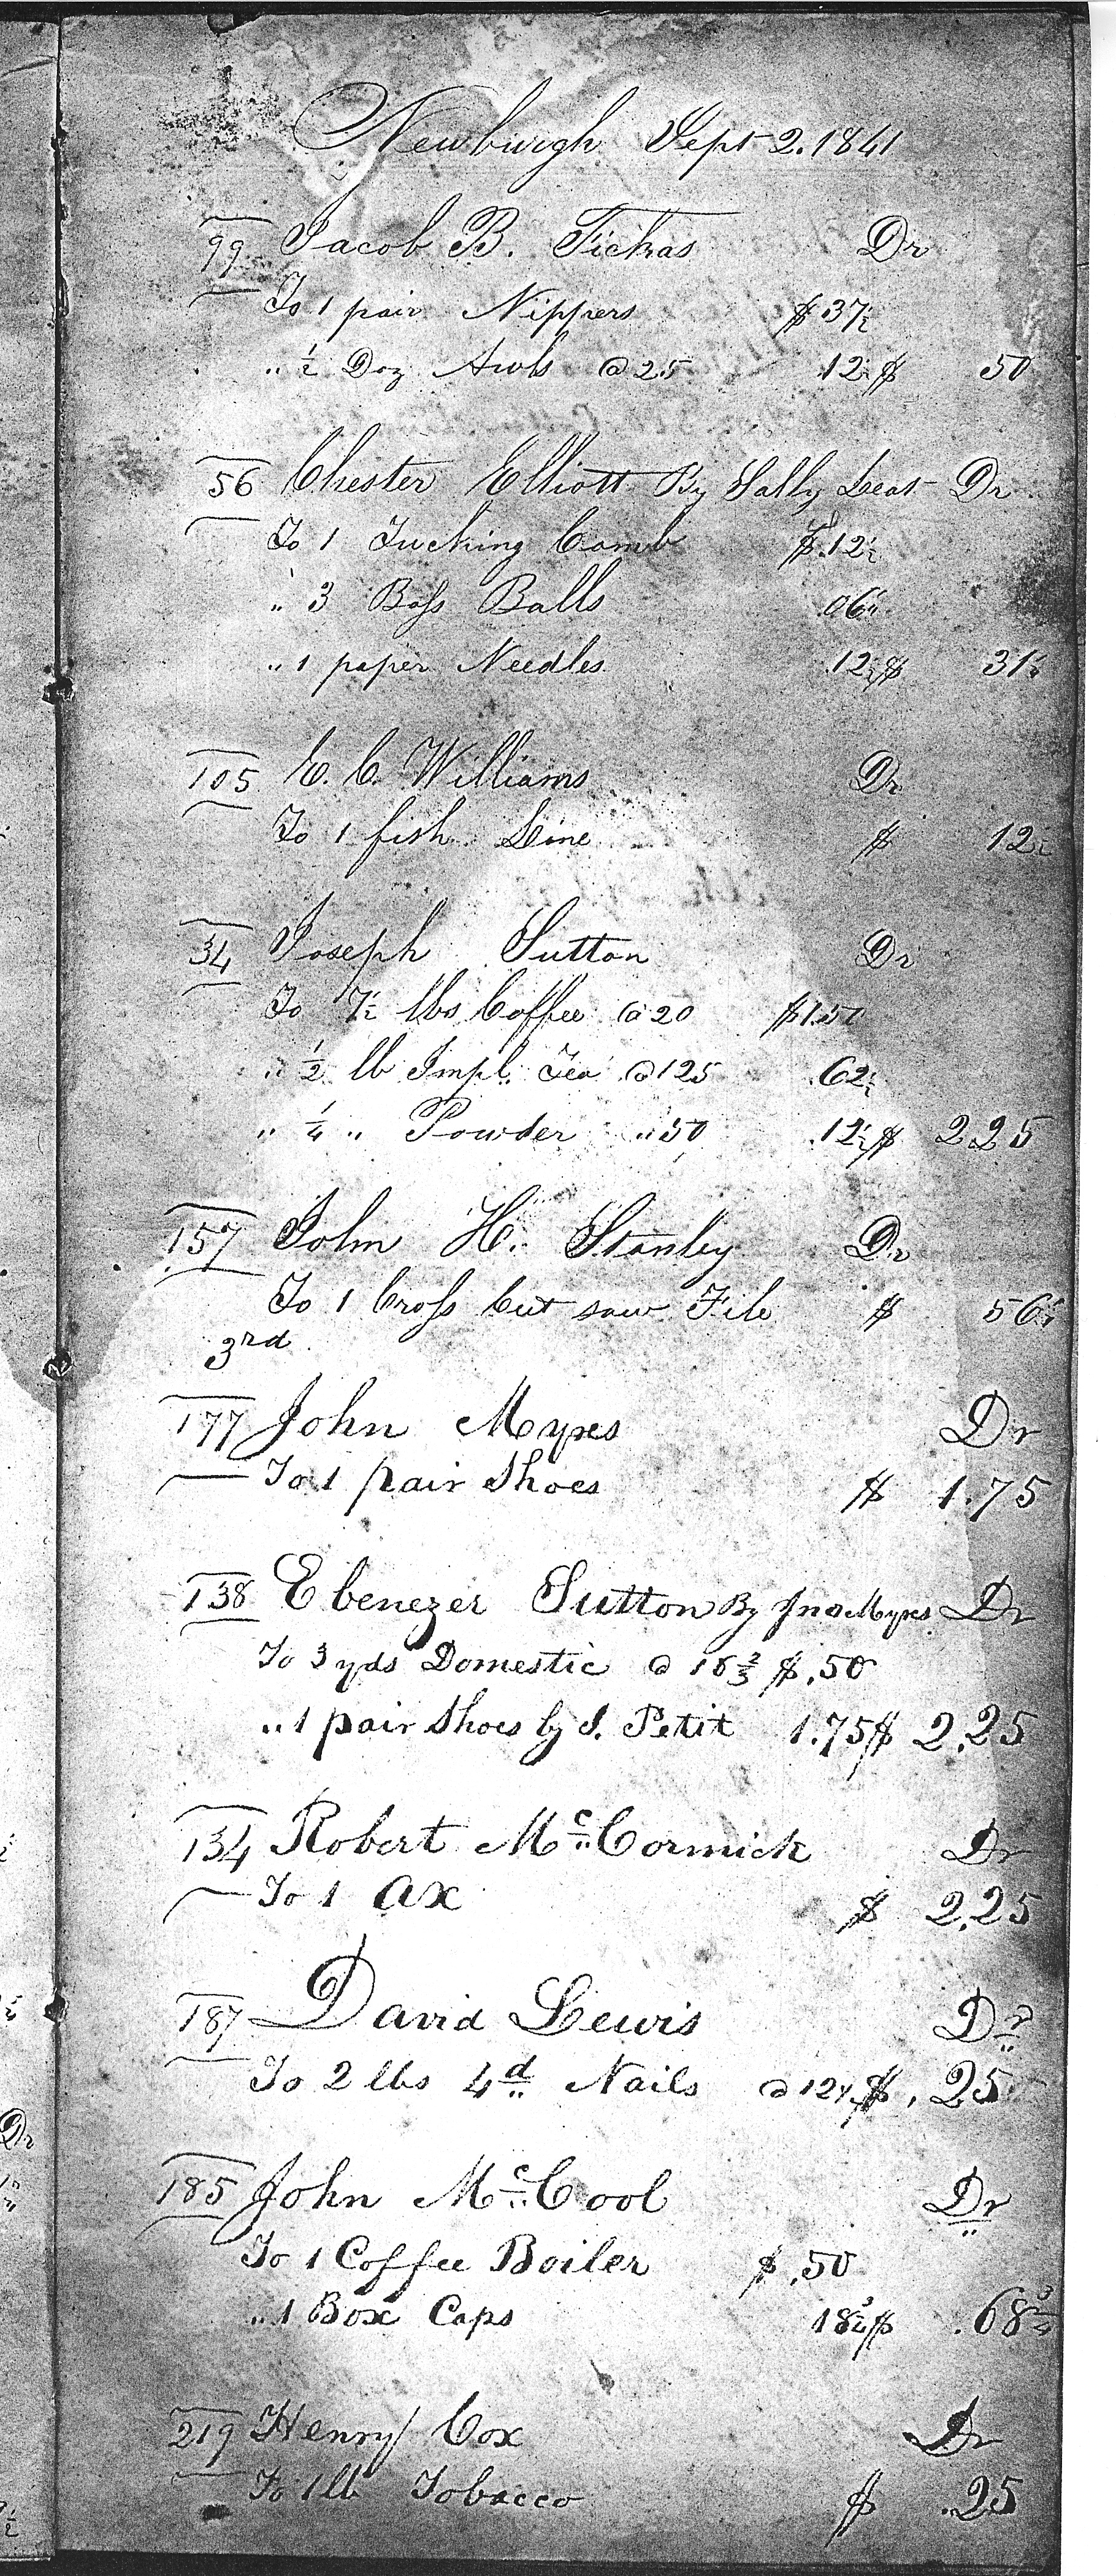 Newburgh Sept 2. 1841
99 Jacob B. Fickas Dr
To 1 pair Nippers $ 37½
" ½ Doz Awls @ 25 .12½ $ 50
56 Chester Elliott By Sally Leas Dr
To 1 Tucking Comb $ .12½
" 3 Boss Balls .06¼
" 1 paper Needles .12½ $ 31¼
105 E. C. Williams Dr
To 1 fish Line $ 12½
34 Joseph Sutton Dr
To 7½ lbs Coffee @ 20 $1.50
" ½ lb Impl. Tea @ 125 .62½
" ¼ " Powder " 50 .12½ $ 2.25
157 John H. Stanley Dr
To 1 Cross Cut saw File $ 56¼
3rd
177 John Myres Dr
To 1 pair Shoes $ 1.75
138 Ebenezer Sutton By Jno Myres Dr
To 3 yds Domestic @ 16⅔ $ .50
" 1 pair Shoes by S. Petit 1.75 $ 2.25
134 Robert Mc.Cormick Dr
To 1 ax $ 2.25
187 David Lewis Dr
To 2 lbs 4d Nails @ 12½ $ .25
185 John Mc.Cool Dr
To 1 Coffee Boiler $ .50
" 1 Box Caps 18¾ $ .68¾
219 Henry Cox Dr
To 1 lb Tobacco $ .25